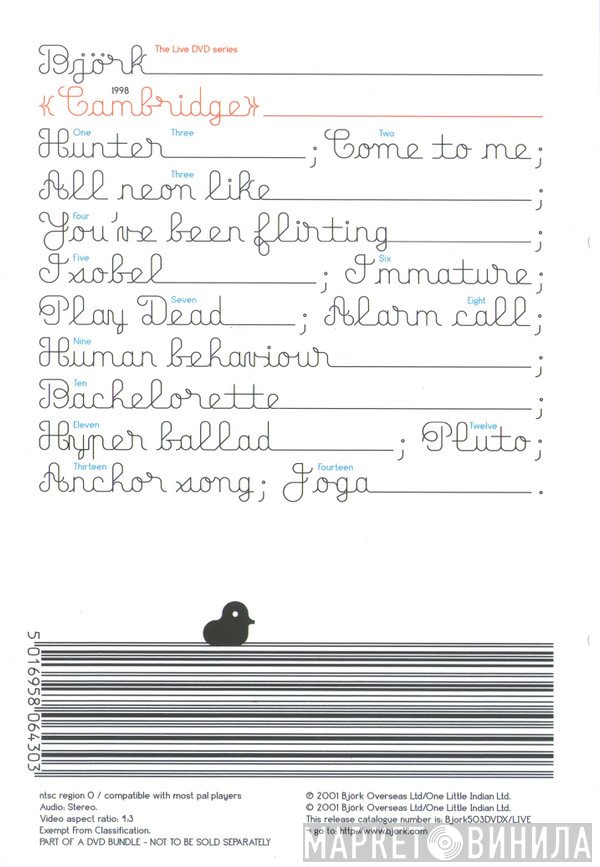 Björk The Live DVD series
{Cambridge} 1998
One Three Two
Hunter ; Come to me;
Three
All neon like ;
Four
You've been flirting ;
Five Six
Isobel ; Immature;
Seven Eight
Play Dead ; Alarm call;
Nine
Human behaviour ;
Ten
Bachelorette ;
Eleven Twelve
Hyper ballad ; Pluto;
Thirteen Fourteen
Anchor song; Joga .
5 016958 064303
ntsc region 0 / compatible with most pal players
Audio: Stereo.
Video aspect ratio: 4:3
Exempt From Classification.
PART OF A DVD BUNDLE - NOT TO BE SOLD SEPARATELY
℗ 2001 Bjork Overseas Ltd/One Little Indian Ltd.
© 2001 Bjork Overseas Ltd/One Little Indian Ltd.
This release catalogue number is: Bjork503DVDX/LIVE
go to: http://www.bjork.com
МАРКЕТ ВИНИЛА